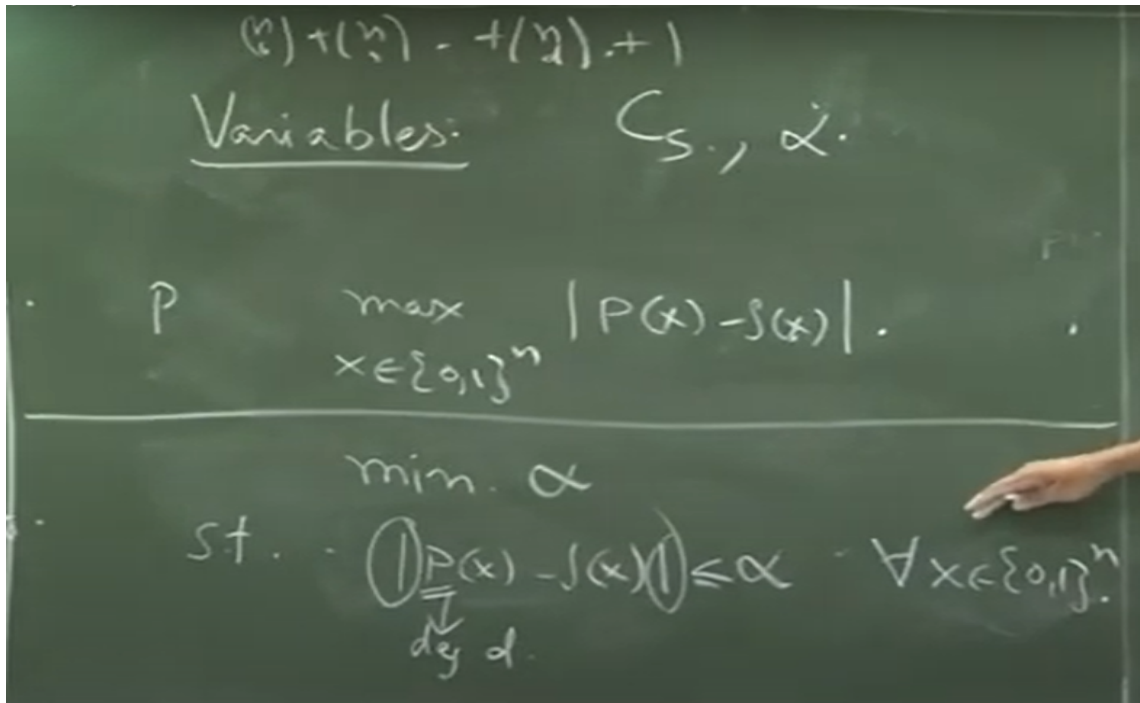 (n) + (n) - + (n d) . + 1
Variables. C_S . , α .
. P max |P(x) - f(x)| .
x ∈ {0,1}^n
min. α
st. - |P(x) - f(x)| ≤ α - ∀ x ∈ {0,1}^n .
deg d.